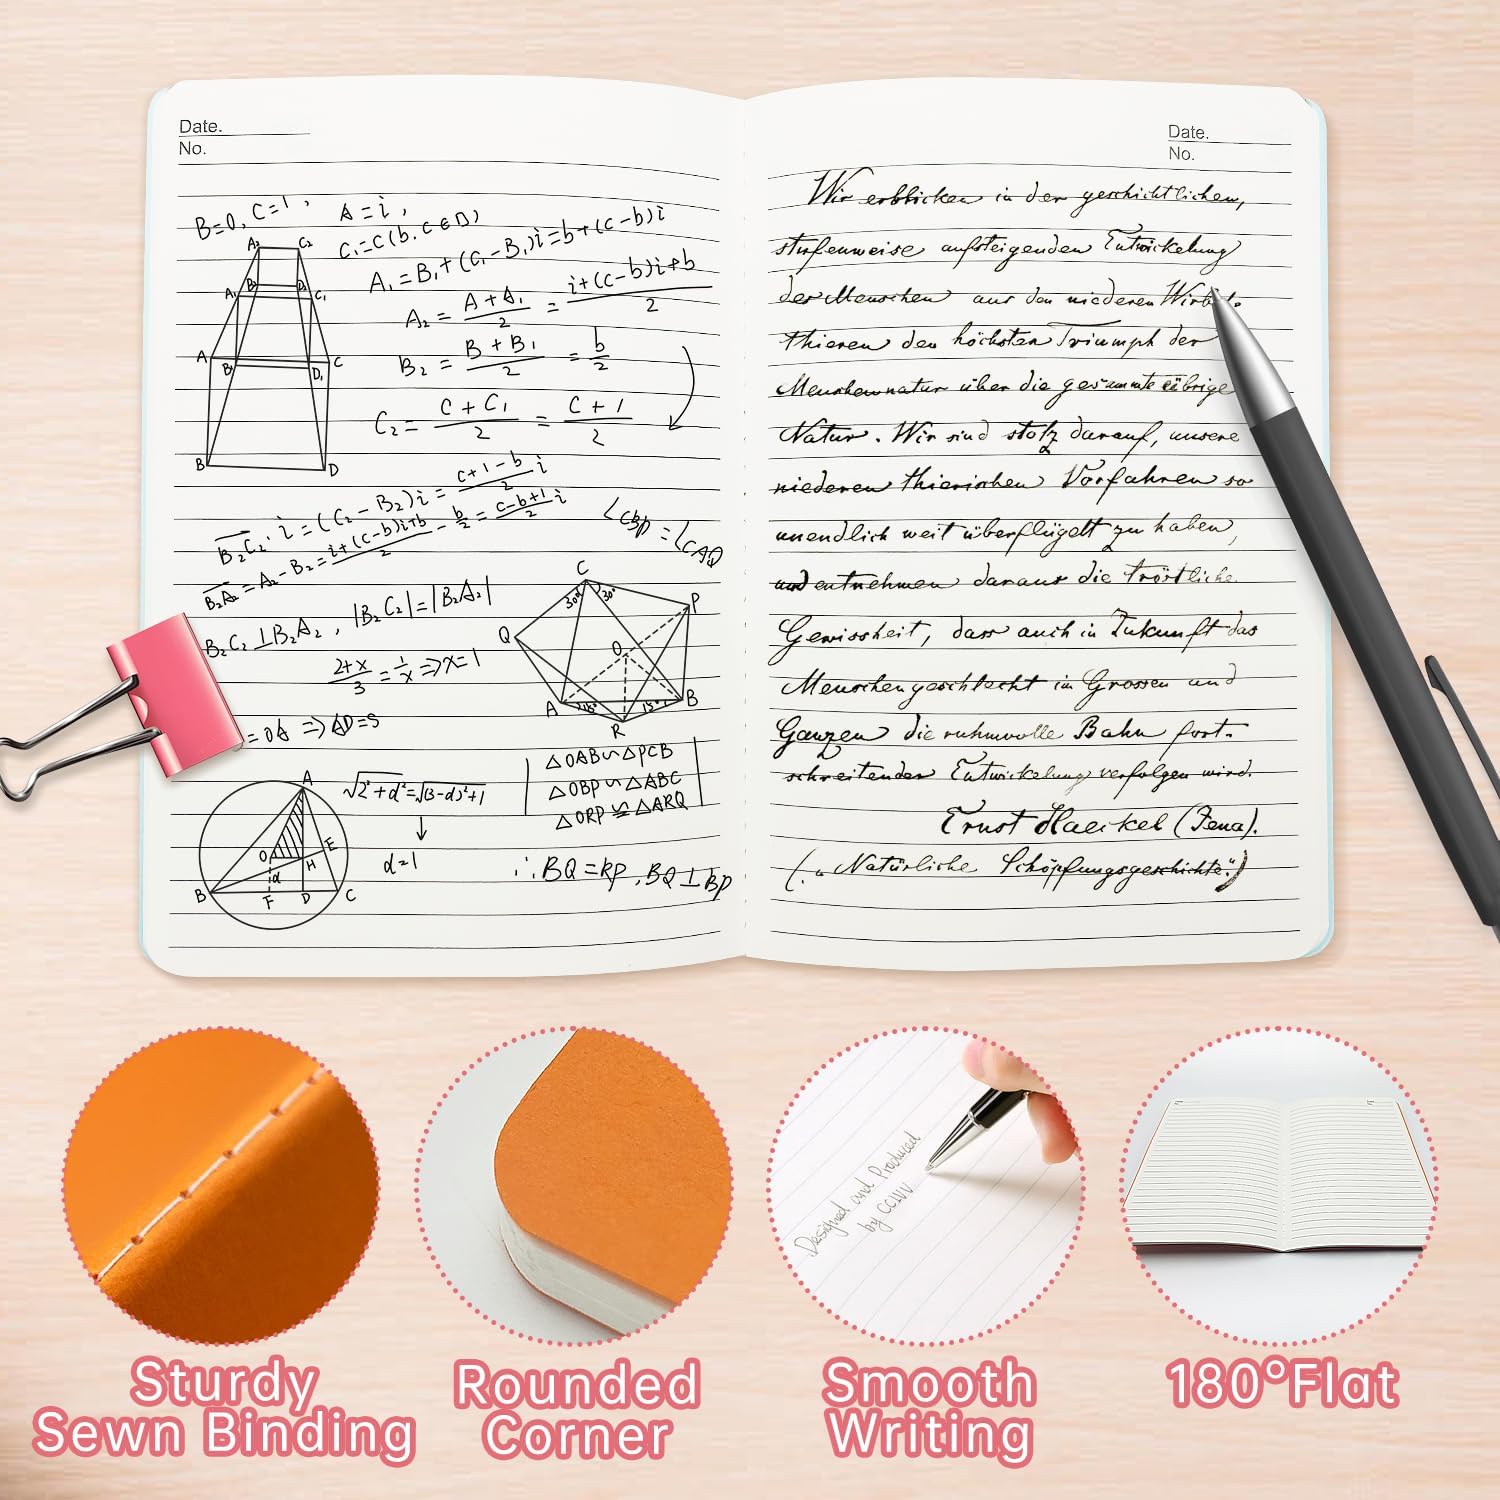 Date.
No.
B=0, C=1,
A=i,
C₁=C(b,c∈D)
A₁=B₁+(C₁-B₁)i=b+(c-b)i
A₂=(A+A₁)/2=(i+(c-b)i+b)/2
B₂=(B+B₁)/2=b/2
C₂=(C+C₁)/2=(C+1)/2
A₂ C₂
B₂ D₂
A₁ C₁
A C
B₁ D₁
B D
B₂C₂·i=(C₂-B₂)i=(c+1-b)/2 i
B₂A₂=A₂-B₂=(i+(c-b)i+b)/2-b/2=(c-b+1)/2 i
∠CBP=∠CAQ
B₂C₂⊥B₂A₂, |B₂C₂|=|B₂A₂|
(2+x)/3=1/x⇒x=1
C
30° 30°
P
Q
O
A B
15° 15°
R
=OA ⇒
△OAB∽△PCB
△OBP∽△ABC
△ORP≌△ARQ
√2²+d²=√(3-d)²+1
d=1
A
O H E
d
B F D C
∴BQ=RP, BQ⊥BP
Date.
No.
Wir erblicken in der geschichtlichen,
stufenweise aufsteigenden Entwickelung
der Menschen aus den niederen Wirbel-
thieren den höchsten Triumph der
Menschennatur über die gesammte übrige
Natur. Wir sind stolz darauf, unsere
niederen thierischen Vorfahren so
unendlich weit überflügelt zu haben,
und entnehmen daraus die tröstliche
Gewissheit, dass auch in Zukunft das
Menschengeschlecht im Grossen und
Ganzen die ruhmvolle Bahn fort-
schreitender Entwickelung verfolgen wird.
Ernst Haeckel (Jena).
(„Natürliche Schöpfungsgeschichte.")
Designed and Produced
by CCIVV
Sturdy
Sewn Binding
Rounded
Corner
Smooth
Writing
180°Flat